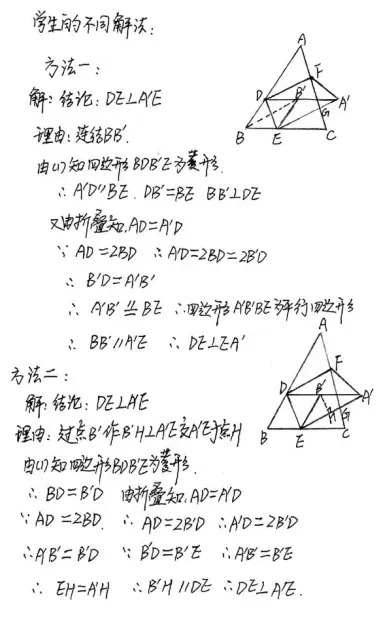 学生的不同解法:
方法一:
解:结论:DE⊥A'E
理由:连结BB'.
由(1)知四边形BDB'E为菱形.
∴ A'D∥BE. DB'=BE BB'⊥DE
又由折叠知,AD=A'D
∵ AD=2BD ∴A'D=2BD=2B'D
∴ B'D=A'B'
∴ A'B'≌BE ∴四边形A'B'BE为平行四边形
∴ BB'∥A'E ∴ DE⊥EA'
A
F
D
B'
A'
G
B
E
C
方法二:
解:结论:DE⊥A'E
理由:过点B'作B'H⊥A'E交A'E于点H
由(1)知四边形BDB'E为菱形.
∴ BD=B'D 由折叠知:AD=A'D
∵ AD=2BD. ∴ AD=2B'D ∴A'D=2B'D
∴A'B'=B'D ∵ B'D=B'E ∴A'B'=B'E
∴ EH=A'H ∴ B'H∥DE ∴DE⊥A'E.
A
F
D
B'
A'
H
G
B
E
C